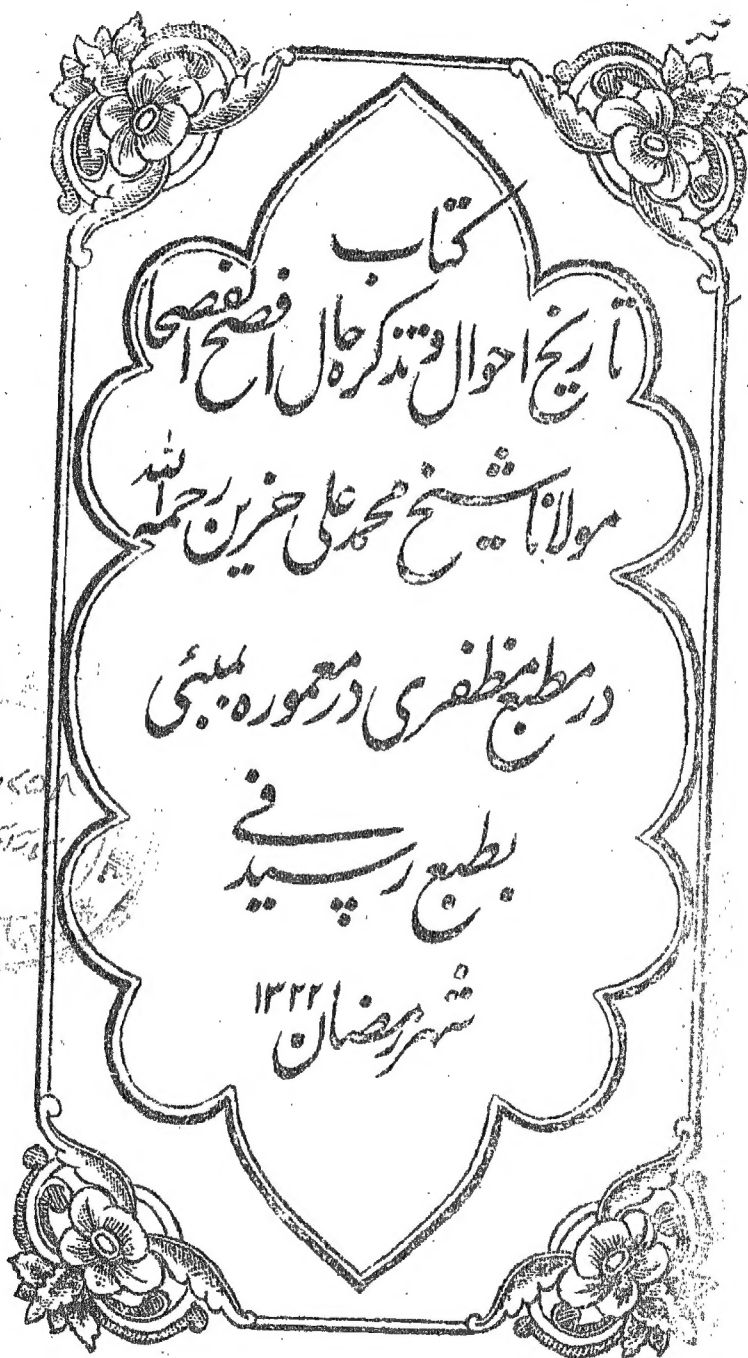 کتاب
تاریخ احوال و تذکره حال افصح الفصحا
مولانا شیخ محمد علی حزین رحمه الله
در مطبع مظفری در معموره بمبئی
بطبع رسید فی
شهر رمضان ۱۳۲۲